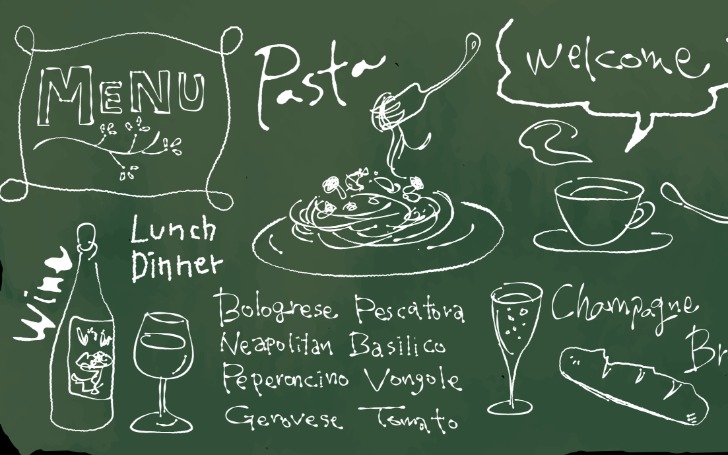 MENU
Pasta
Welcome
Lunch
Dinner
Wine
Wine
Bolognese Pescatora
Neapolitan Basilico
Peperoncino Vongole
Genovese Tomato
Champagne
Br